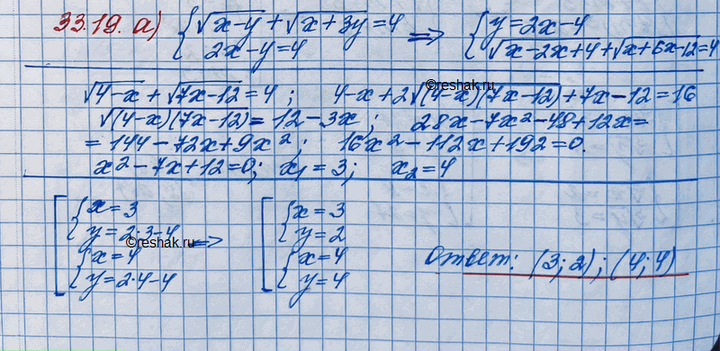 33.19. а) { √(x-y) + √(x+3y) = 4 => { y=2x-4
2x-y=4 √(x-2x+4) + √(x+6x-12) = 4
©reshak.ru
√(4-x) + √(7x-12) = 4 ; 4-x+2√((4-x)(7x-12)) + 7x-12=16
√((4-x)(7x-12)) = 12-3x ; 28x-7x²-48+12x=
= 144-72x+9x² ; 16x²-112x+192=0.
x²-7x+12=0; x₁=3; x₂=4
[ { x=3 [ { x=3
y=2·3-4 => y=2
©reshak.ru
{ x=4 { x=4
y=2·4-4 y=4
Ответ: (3;2); (4;4)